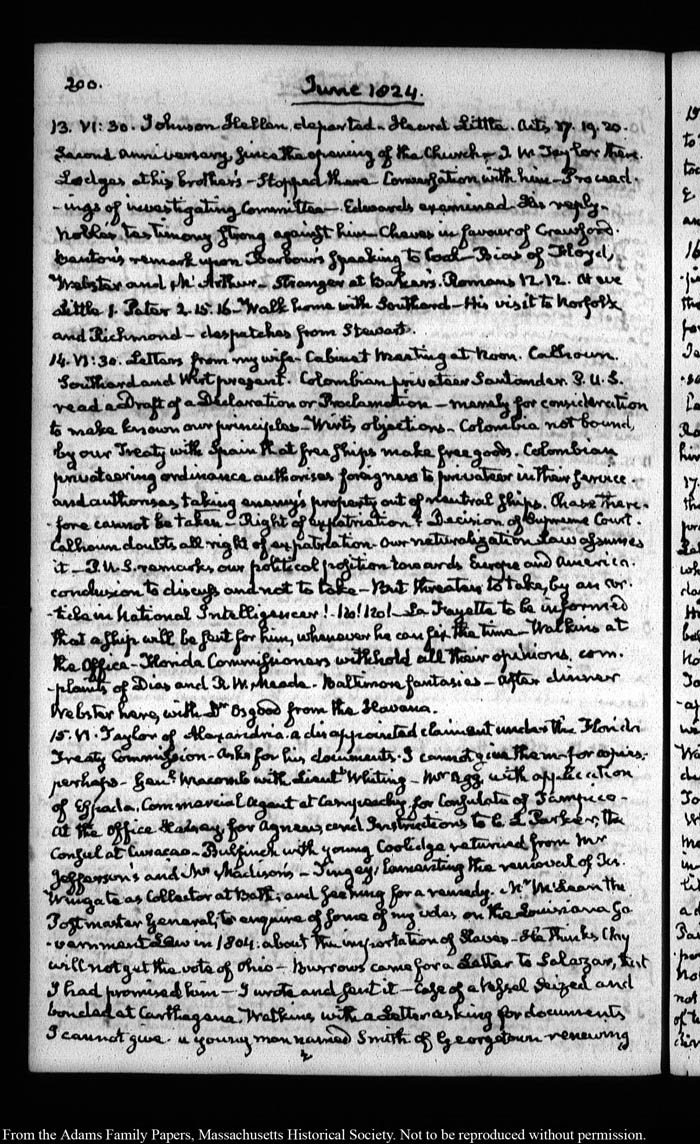 200.
June 1824.
13. VI:30. Johnson Hellen, departed. Heard Little. Acts, 17. 19. 20.
Second anniversary, since the opening of the Church. J. W. Taylor there.
Lodges at his brother's - Stopped there - Conversation with him - Proceed-
-ings of investigating Committee - Edwards examined. His reply.
Noble's testimony strong against him - Cheves in favour of Crawford.
Benton's remark upon Barbour's speaking to Cook - Bias of Floyd,
Webster and McArthur - Stranger at Baker's. Romans 12. 12. At eve
Little 1. Peter 2. 15. 16. Walk home with Southard - His visit to Norfolk
and Richmond - despatches from Stewart.
14. VI:30. Letters from my wife. Cabinet Meeting at Noon. Calhoun.
Southard and Wirt present. Colombian privateer Santander. P. U. S.
read a Draft of a Declaration or Proclamation - merely for consideration
to make known our principles - Wirt's objections - Colombia not bound
by our Treaty with Spain that free ships make free goods. Colombian
privateering ordinance authorises foreigners to privateer in their service.
and authorises taking enemy's property out of neutral ships. Chase there-
-fore cannot be taken - Right of expatriation? Decision of Supreme Court.
Calhoun doubts all right of expatriation. Our naturalization Law assumes
it - P. U. S. remarks our political position towards Europe and America.
conclusion to discuss and not to take - But threaten to take, by an ar-
-ticle in National Intelligencer! - La Fayette to be informed
that a ship will be sent for him, whenever he can fix the time - Watkins at
the Office - Florida Commissioners withhold all their opinions. com-
-plaints of Dias and R. W. Meade. Baltimore fantasies - After dinner
Webster here, with Dr Osgood from the Havana.
15. VI. Taylor of Alexandria. a disappointed claimant under the Florida
Treaty Commission - Asks for his documents. I cannot give them - for copies.
perhaps - Genl. Macomb with Lieutt Whiting - Mr Agg, with application
of Espada. Commercial Agent at Campeachy, for Consulate of Tampico -
At the Office Ramsay, for Agnew, and Instructions to C. L. Parker, the
Consul at Curacao. Bulfinch with young Coolidge returned from Mr
Jefferson's and Mr Madison's - Tingey, lamenting the removal of Jos.
Wingate as Collector at Bath; and seeking for a remedy. Mr McLean the
Postmaster General; to enquire of some of my votes on the Louisiana Go-
-vernment Law in 1804: about the importation of Slaves - He thinks Clay
will not get the vote of Ohio - Burrows came for a Letter to Salazar, that
I had promised him - I wrote and sent it - Case of a Vessel seized and
bonded at Carthagena. Watkins with a Letter asking for documents
I cannot give. a young man named Smith of Georgetown renewing
From the Adams Family Papers, Massachusetts Historical Society. Not to be reproduced without permission.